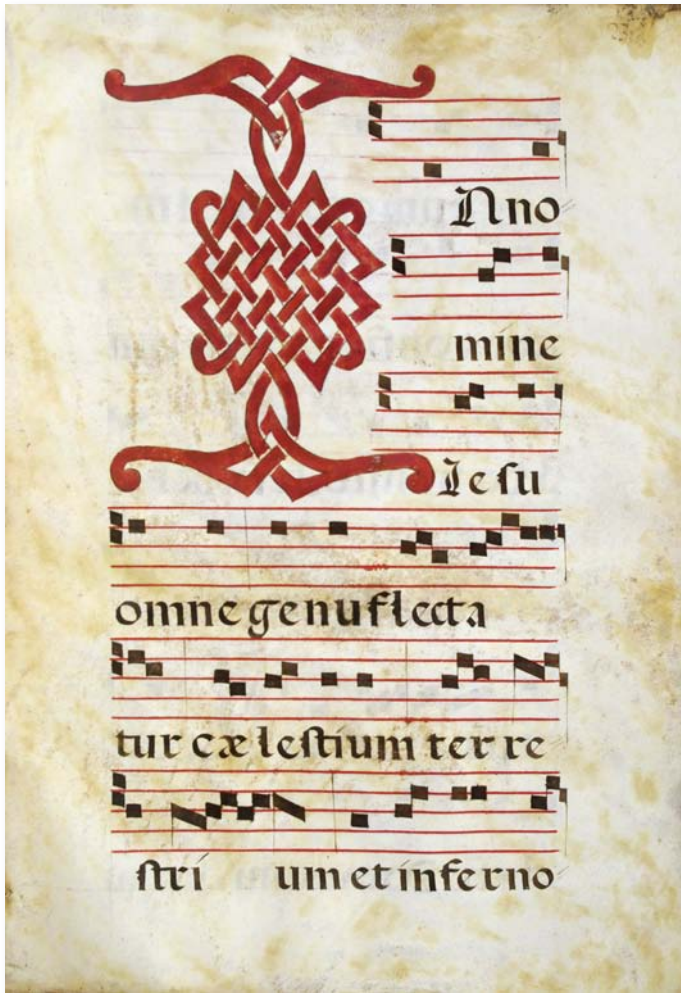 IN no
mine
Iesu
omne genu flecta
tur cælestium terre
stri um et inferno